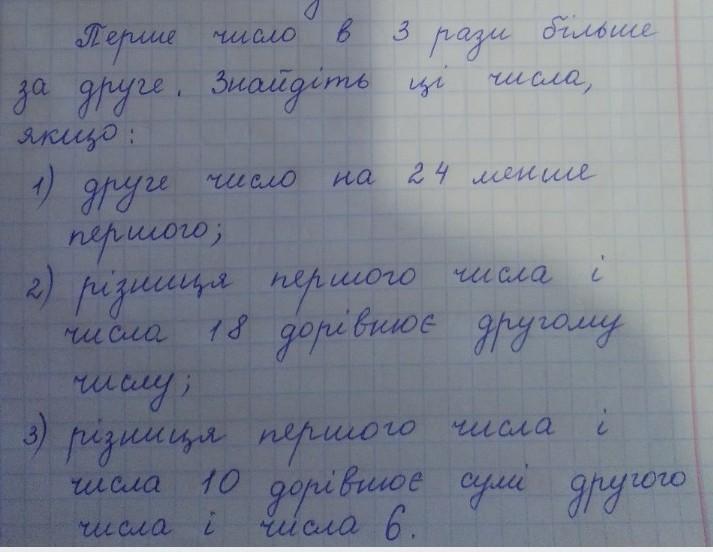 Перше число в 3 рази більше
за друге. Знайдіть ці числа,
якщо:
1) друге число на 24 менше
першого;
2) різниця першого числа і
числа 18 дорівнює другому
числу;
3) різниця першого числа і
числа 10 дорівнює сумі другого
числа і числа 6.